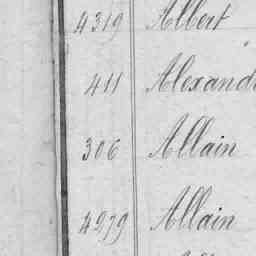 4319 Albert
411 Alexand
306 Allain
4279 Allain